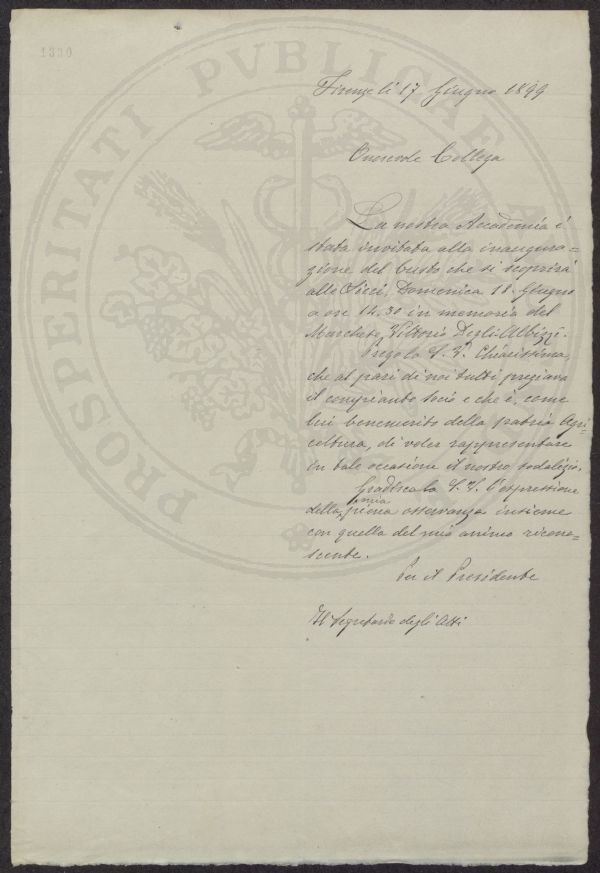 1330
PROSPERITATI PVBLICAE A
Firenze li 17 Giugno 1899
Onorevole Collega
La nostra Accademia è
stata invitata alla inaugura=
zione del busto che si scoprirà
alle Sieci, Domenica 18. Giugno
a ore 14.30 in memoria del
Marchese Vittorio Degli Albizzi.
Prego la S. V. Chiarissima,
che al pari di noi tutti pregiava
il compianto socio e che è, come
lui benemerito della patria Agri
coltura, di voler rappresentare
in tale occasione il nostro sodalizio.
Gradisca la S. V. l'espressione
della mia piena osservanza insieme
con quella del mio animo ricono=
scente.
Per il Presidente
Il Segretario degli Atti